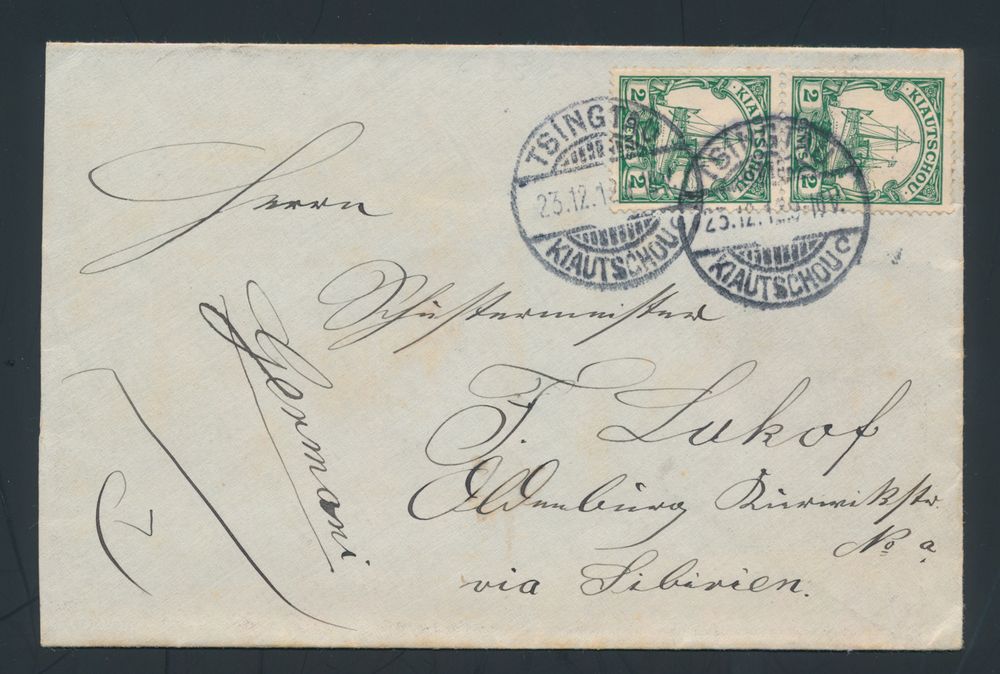 KIAUTSCHOU.
2 CENTS 2
KIAUTSCHOU.
2 CENTS 2
TSINGT
23.12.1
KIAUTSCHOU
TSINGT
23.12.1
KIAUTSCHOU
Herrn
Schustermeister
F. Lukof
Oldenburg Kurwikstr.
No a
via Sibirien.
Germani
7